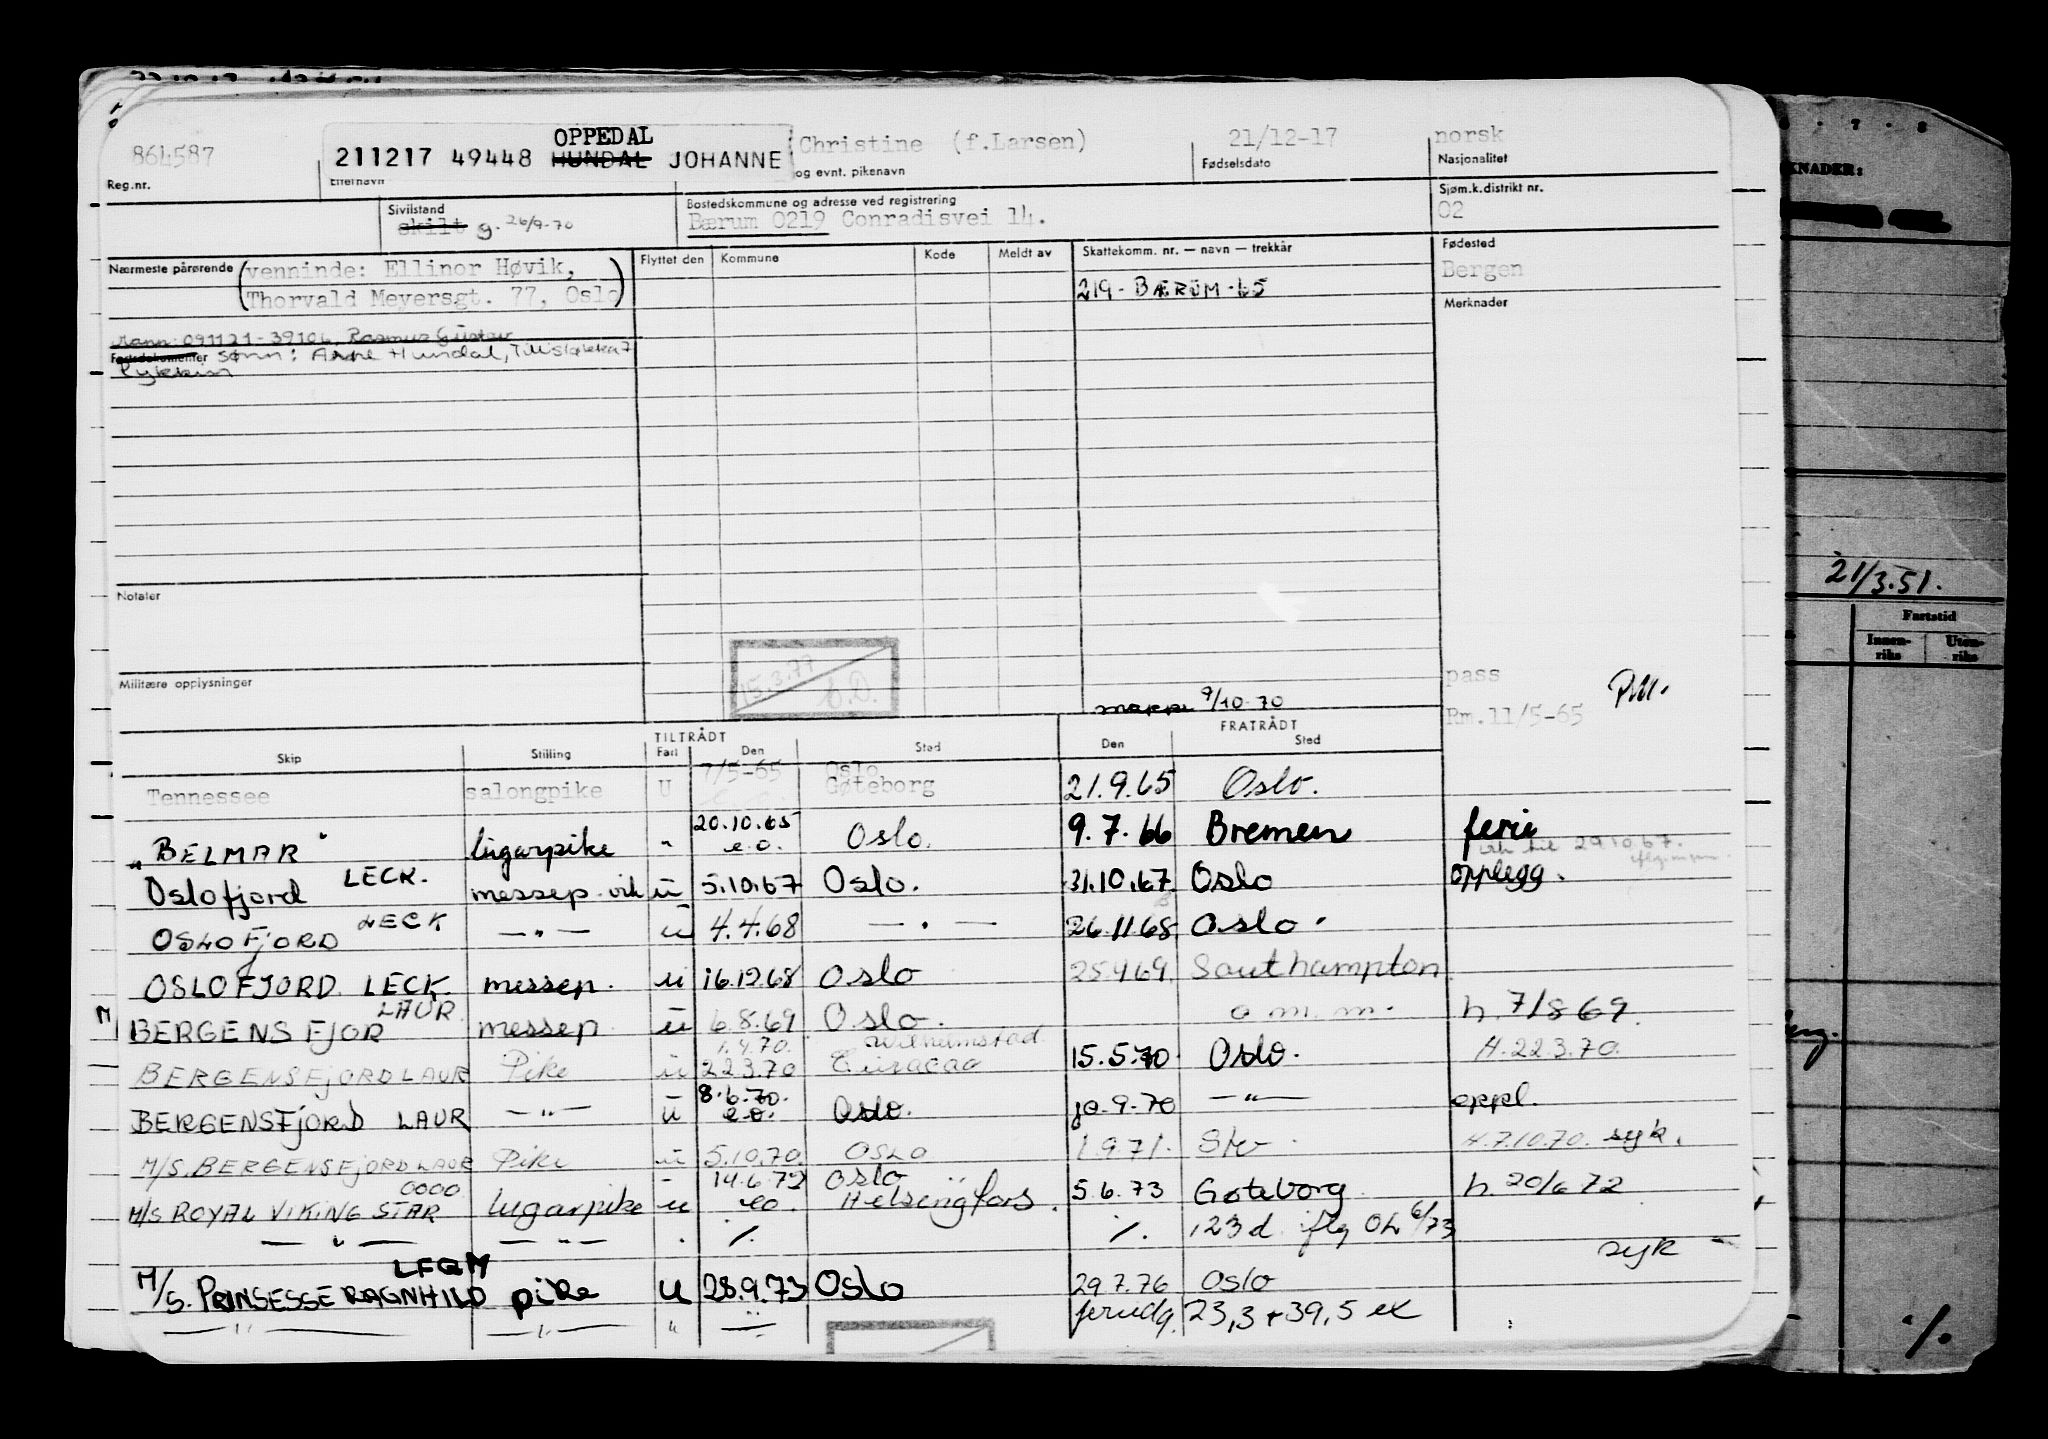 864587
Reg.nr.
OPPEDAL
211217 49448 HUNDAL JOHANNE
Etternavn
Christine (f.Larsen)
og evnt. pikenavn
21/12-17
Fødselsdato
norsk
Nasjonalitet
Sivilstand
skilt g. 26/9-70
Bostedskommune og adresse ved registrering
Bærum 0219 Conradisvei 14.
Sjøm.k.distrikt nr.
02
Nærmeste pårørende
(venninde: Ellinor Høvik,
Thorvald Meyersgt. 77, Oslo)
Mann: 091121-39106, Rasmus Gustav
sønn: Arne Hundal, Tillisløkka 7
Rykkinn
Flyttet den
Kommune
Kode
Meldt av
Skattekomm. nr. — navn — trekkår
219 - BÆRUM - 65
Fødested
Bergen
Merknader
Notater
Militære opplysninger
15.3.77
9/10-70
pass
Rm.11/5-65
TILTRÅDT
FRATRÅDT
Skip Stilling Fart Den Sted Den Sted
Tennessee salongpike U 7/5-65 Oslo Gøteborg 21.9.65 Oslo.
„BELMAR" lugarpike " 20.10.65 e.o. Oslo. 9.7.66 Bremen ferie
Oslofjord LECK. messep. vik ü 5.10.67 Oslo. 31.10.67 Oslo opplegg.
29.10.67.
OSLOFJORD LECK — " — ü 4.4.68 — " — 26.11.68 Oslo.
OSLOFJORD LECK messep. ü 16.12.68 Oslo 25.4.69. Southampton
BERGENSFJOR LAUR messep ü 6.8.69 Oslo. o m. m. h. 7/8 69.
BERGENSFJORD LAUR Pike ü 1.4.70. 22.3.70 Wilhelmstad Curacao 15.5.70. Oslo. H.22.3.70.
BERGENSFJORD LAUR — " — ü 8.6.70. e.o. Oslo. 9.70 — " — oppl.
M/S. BERGENSFJORD LAUR Pike ü 5.10.70. OSLO 1.9.71. H.7.10.70. syk.
M/S ROYAL VIKING STAR OOOO lugarpike u 14.6.72 eo. Oslo Helsingfors. 5.6.73 Gøteborg h. 20/6 72
— " — — " — . ./. ./. 123 d. iflg OL 6/73
syk
M/S. PRINSESSE RAGNHILD LFQM pike u 28.9.73 Oslo 29.7.76 Oslo
— " — — " — " — " — feriedg. 23,3 + 39,5 ex
6 . 7 . 8
21/3.51.
Fartstid
Innen-riks
Uten-riks
./.